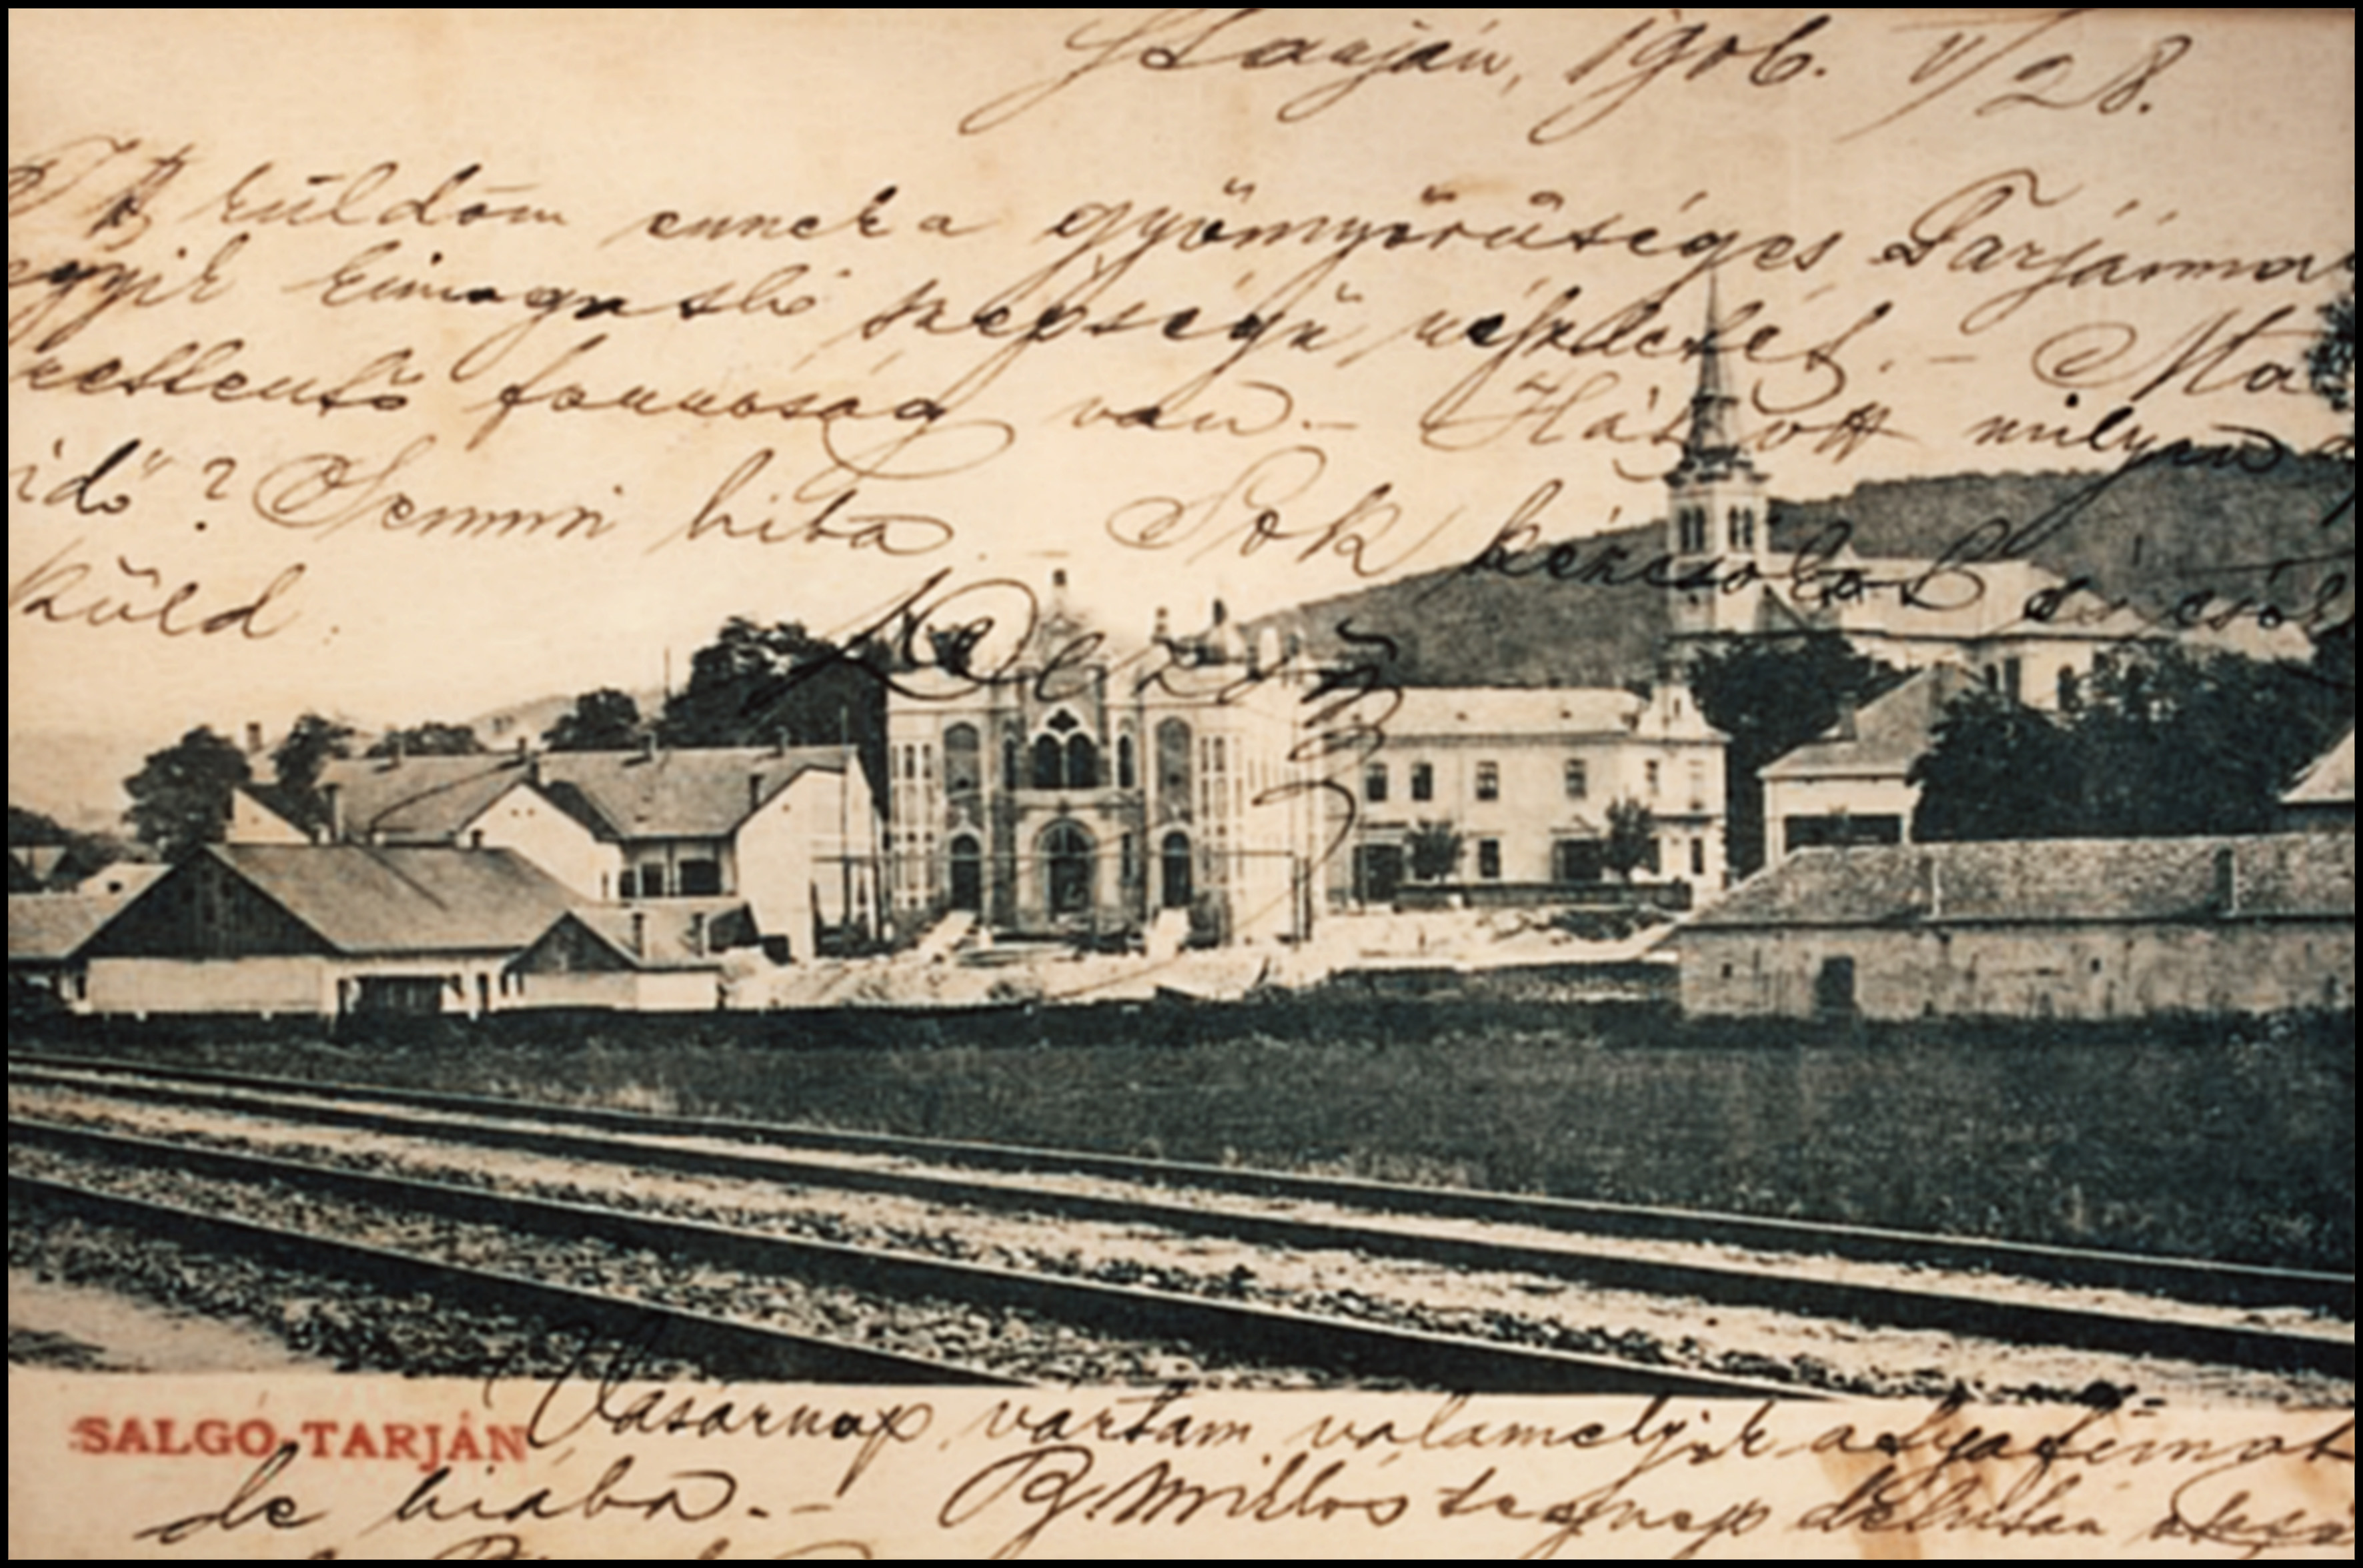 STarján, 1906. V/28.
Itt küldöm ennek a gyönyörűséges Tarjánna
egyik kimagasló szépségű részletét. - Ma
rettentő forróság van. - Hát ott milyen
idő? Semmi hiba. - Sok kézcsókot és csók
küld.
Dezső
SALGÓ-TARJÁN
Vasárnap vártam valamelyik atyafimat
de hiába. - B. Miklós tegnap délután